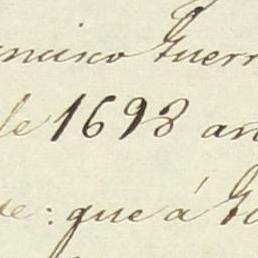 ncisco Guerr
de 1698 an
de: que á